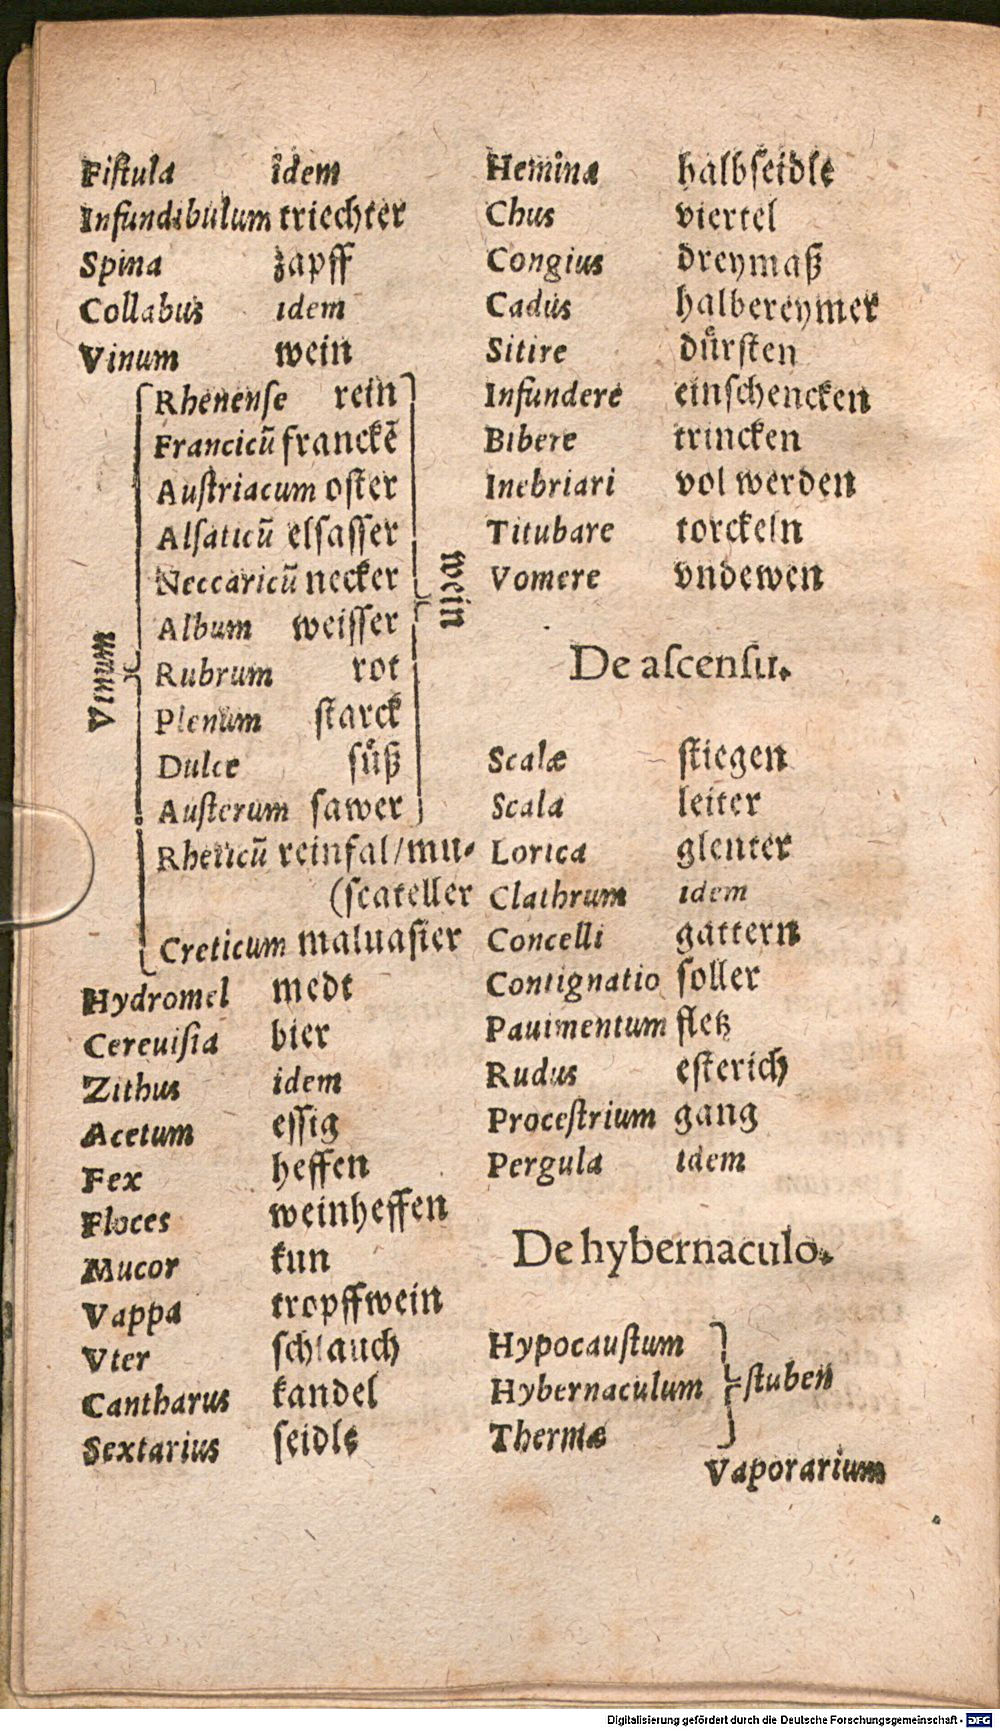 Fiſtula idem
Infundibulum triechter
Spina zapff
Collabus idem
Vinum wein
Vinum
Rhenenſe rein
Francicũ franckẽ
Auſtriacum oſter
Alſaticũ elſaſſer
Neccaricũ necker
Album weiſſer
Rubrum rot
Plenum ſtarck
Dulce ſuͤß
Auſterum ſawer
wein
Rheticũ reinfal/mu⸗
(ſcateller
Creticum maluaſier
Hydromel medt
Cereuiſia bier
Zithus idem
Acetum eſſig
Fex heffen
Floces weinheffen
Mucor kun
Vappa tropffwein
Vter ſchlauch
Cantharus kandel
Sextarius ſeidle
Heminæ halbſeidle
Chus viertel
Congius dreymaß
Cadus halbereymer
Sitire duͤrſten
Infundere einſchencken
Bibere trincken
Inebriari vol werden
Titubare torckeln
Vomere vndewen
De aſcenſu.
Scalæ ſtiegen
Scala leiter
Lorica glenter
Clathrum idem
Concelli gattern
Contignatio ſoller
Pauimentum fletz
Rudus eſterich
Proceſtrium gang
Pergula idem
De hybernaculo.
Hypocauſtum
Hybernaculum ſtuben
Thermæ
Vaporarium
Digitalisierung gefördert durch die Deutsche Forschungsgemeinschaft - DFG